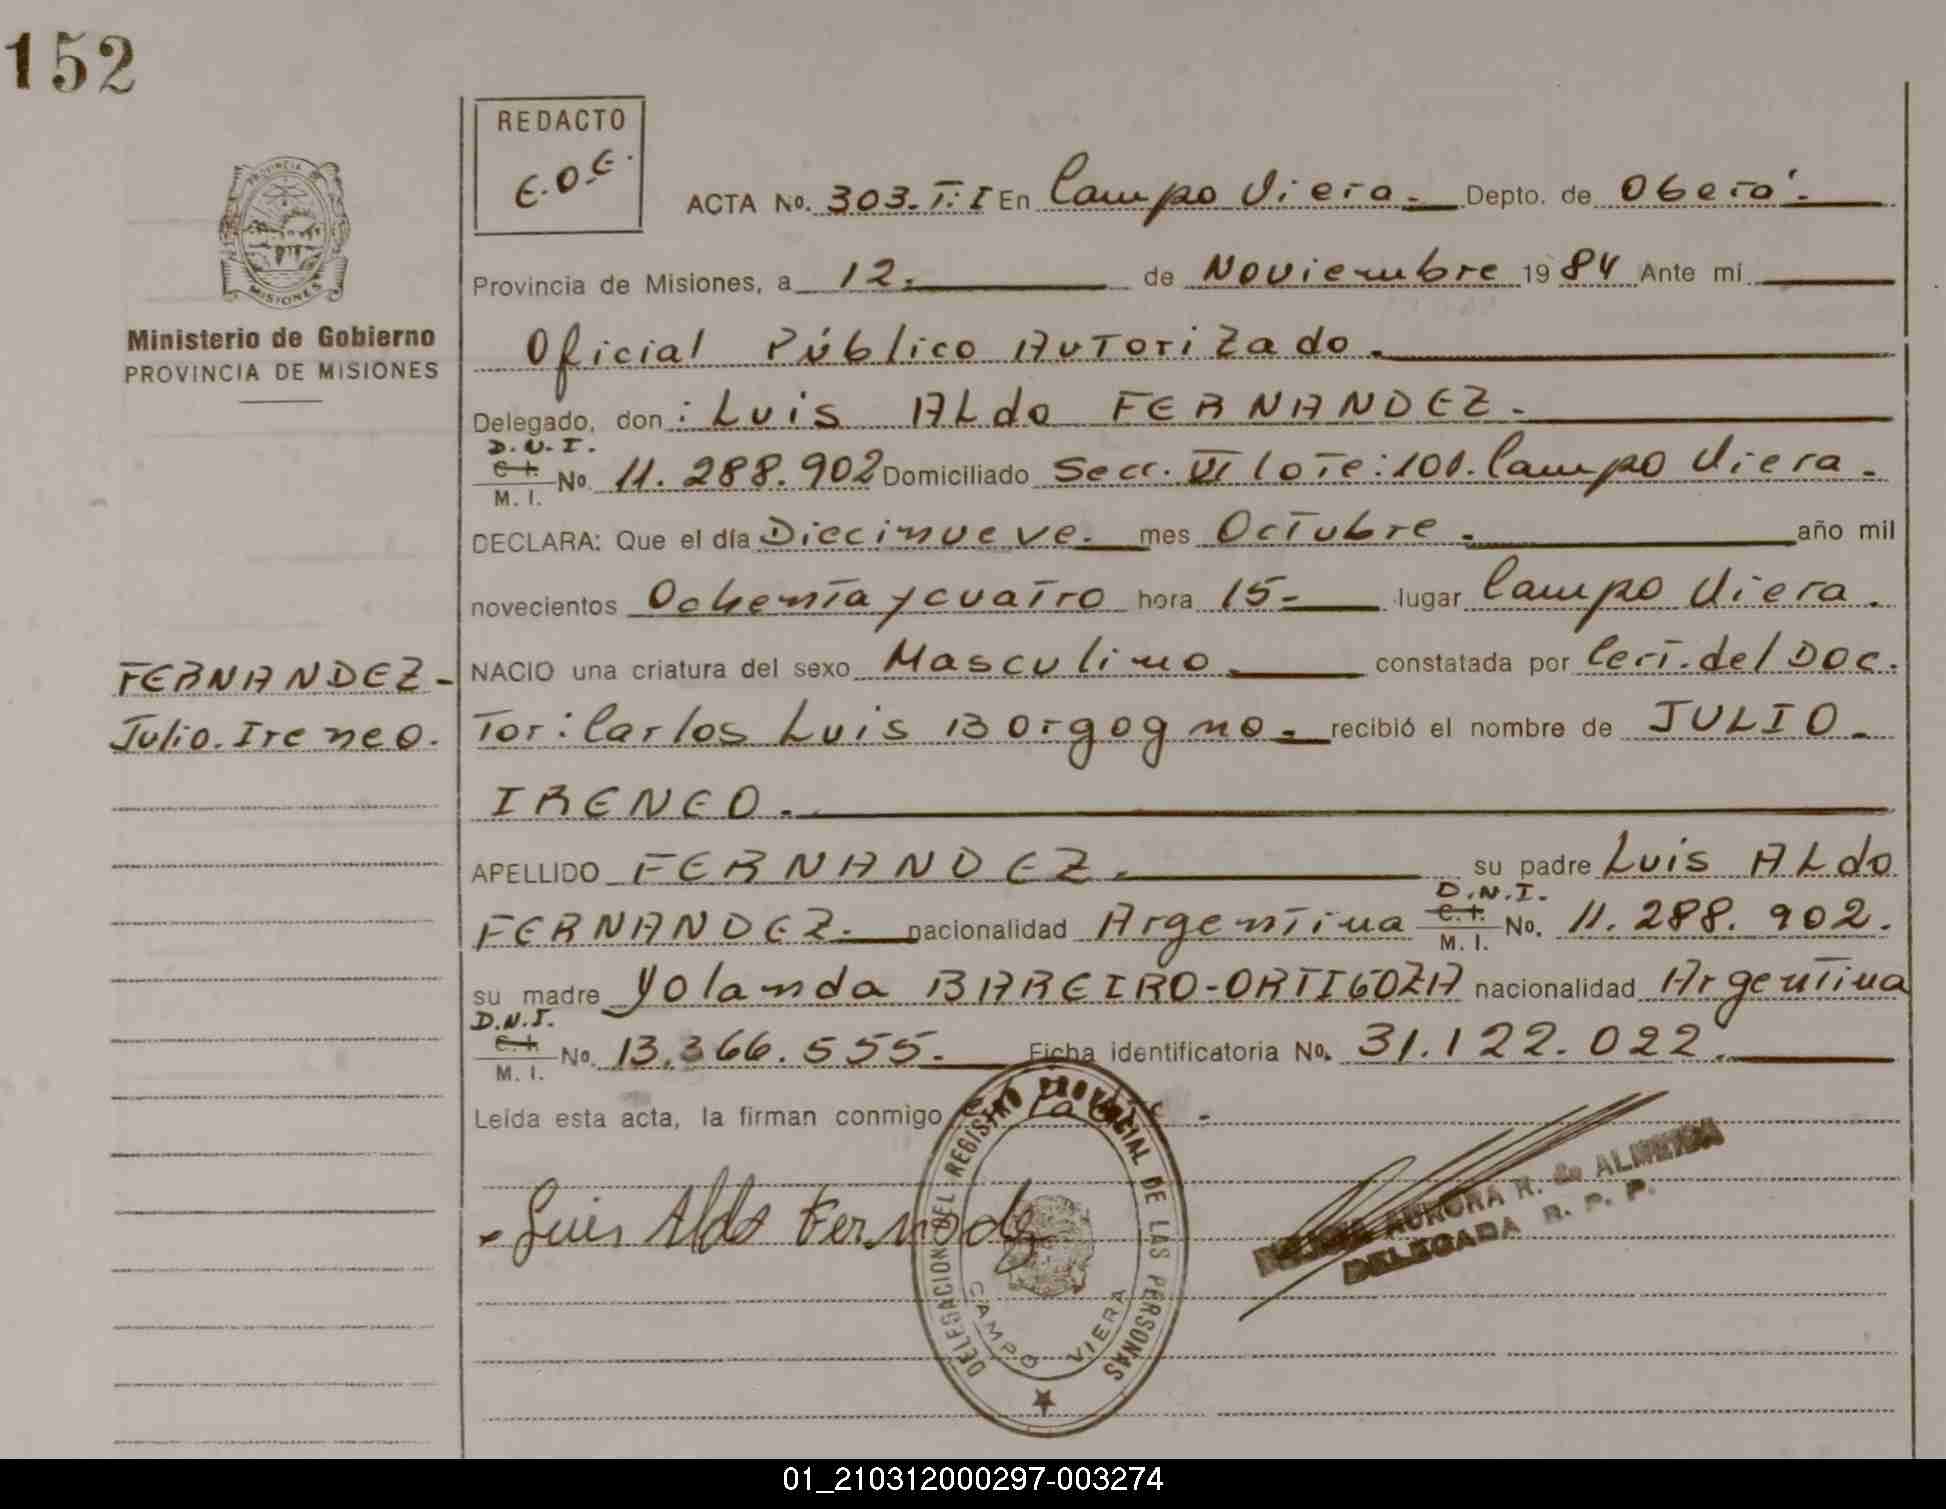 152
REDACTO
E.O.E.
PROVINCIA DE
MISIONES
Ministerio de Gobierno
PROVINCIA DE MISIONES
ACTA No. 303. T: I En Campo Viera. Depto. de Oberá.
Provincia de Misiones, a 12. de Noviembre 19 84 Ante mí
Oficial Público Autorizado.
Delegado, don: Luis Aldo FERNANDEZ.
D.N.I.
C. I.
M. I. No. 11.288.902 Domiciliado Secc. VI lote: 101. Campo Viera.
DECLARA: Que el día Diecinueve. mes Octubre. año mil
novecientos Ochenta y cuatro hora 15- lugar Campo Viera.
NACIO una criatura del sexo Masculino constatada por Cert. del Doc.
tor: Carlos Luis Borgogno. recibió el nombre de JULIO.
IRENEO.
FERNANDEZ-
Julio. Ireneo.
APELLIDO FERNANDEZ. su padre Luis Aldo
D.N.I.
FERNANDEZ. nacionalidad Argentina C. I. M. I. No. 11.288.902.
su madre Yolanda BAREIRO-ORTIGOZA nacionalidad Argentina
D.N.I.
C. I.
M. I. No. 13.366.555. Ficha identificatoria No. 31.122.022.
Leída esta acta, la firman conmigo
Luis Aldo Fernandez
DELEGACION DEL REGISTRO PROVINCIAL DE LAS PERSONAS
CAMPO VIERA
AURORA R. de ALMEIDA
DELEGADA R. P. P.
01_210312000297-003274